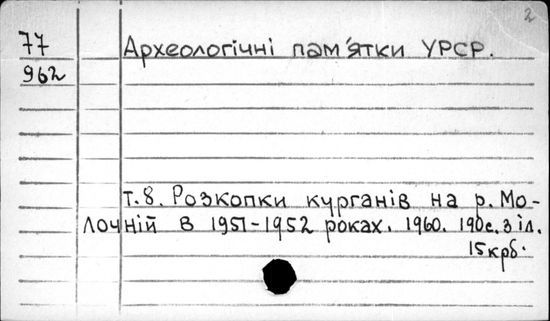 2
77
962
Археологічні пам'ятки УРСР.
т.8. Розкопки курганів на р. Мо-
лочній в 1951-1952 роках. 1960. 190с. з іл.
15крб.